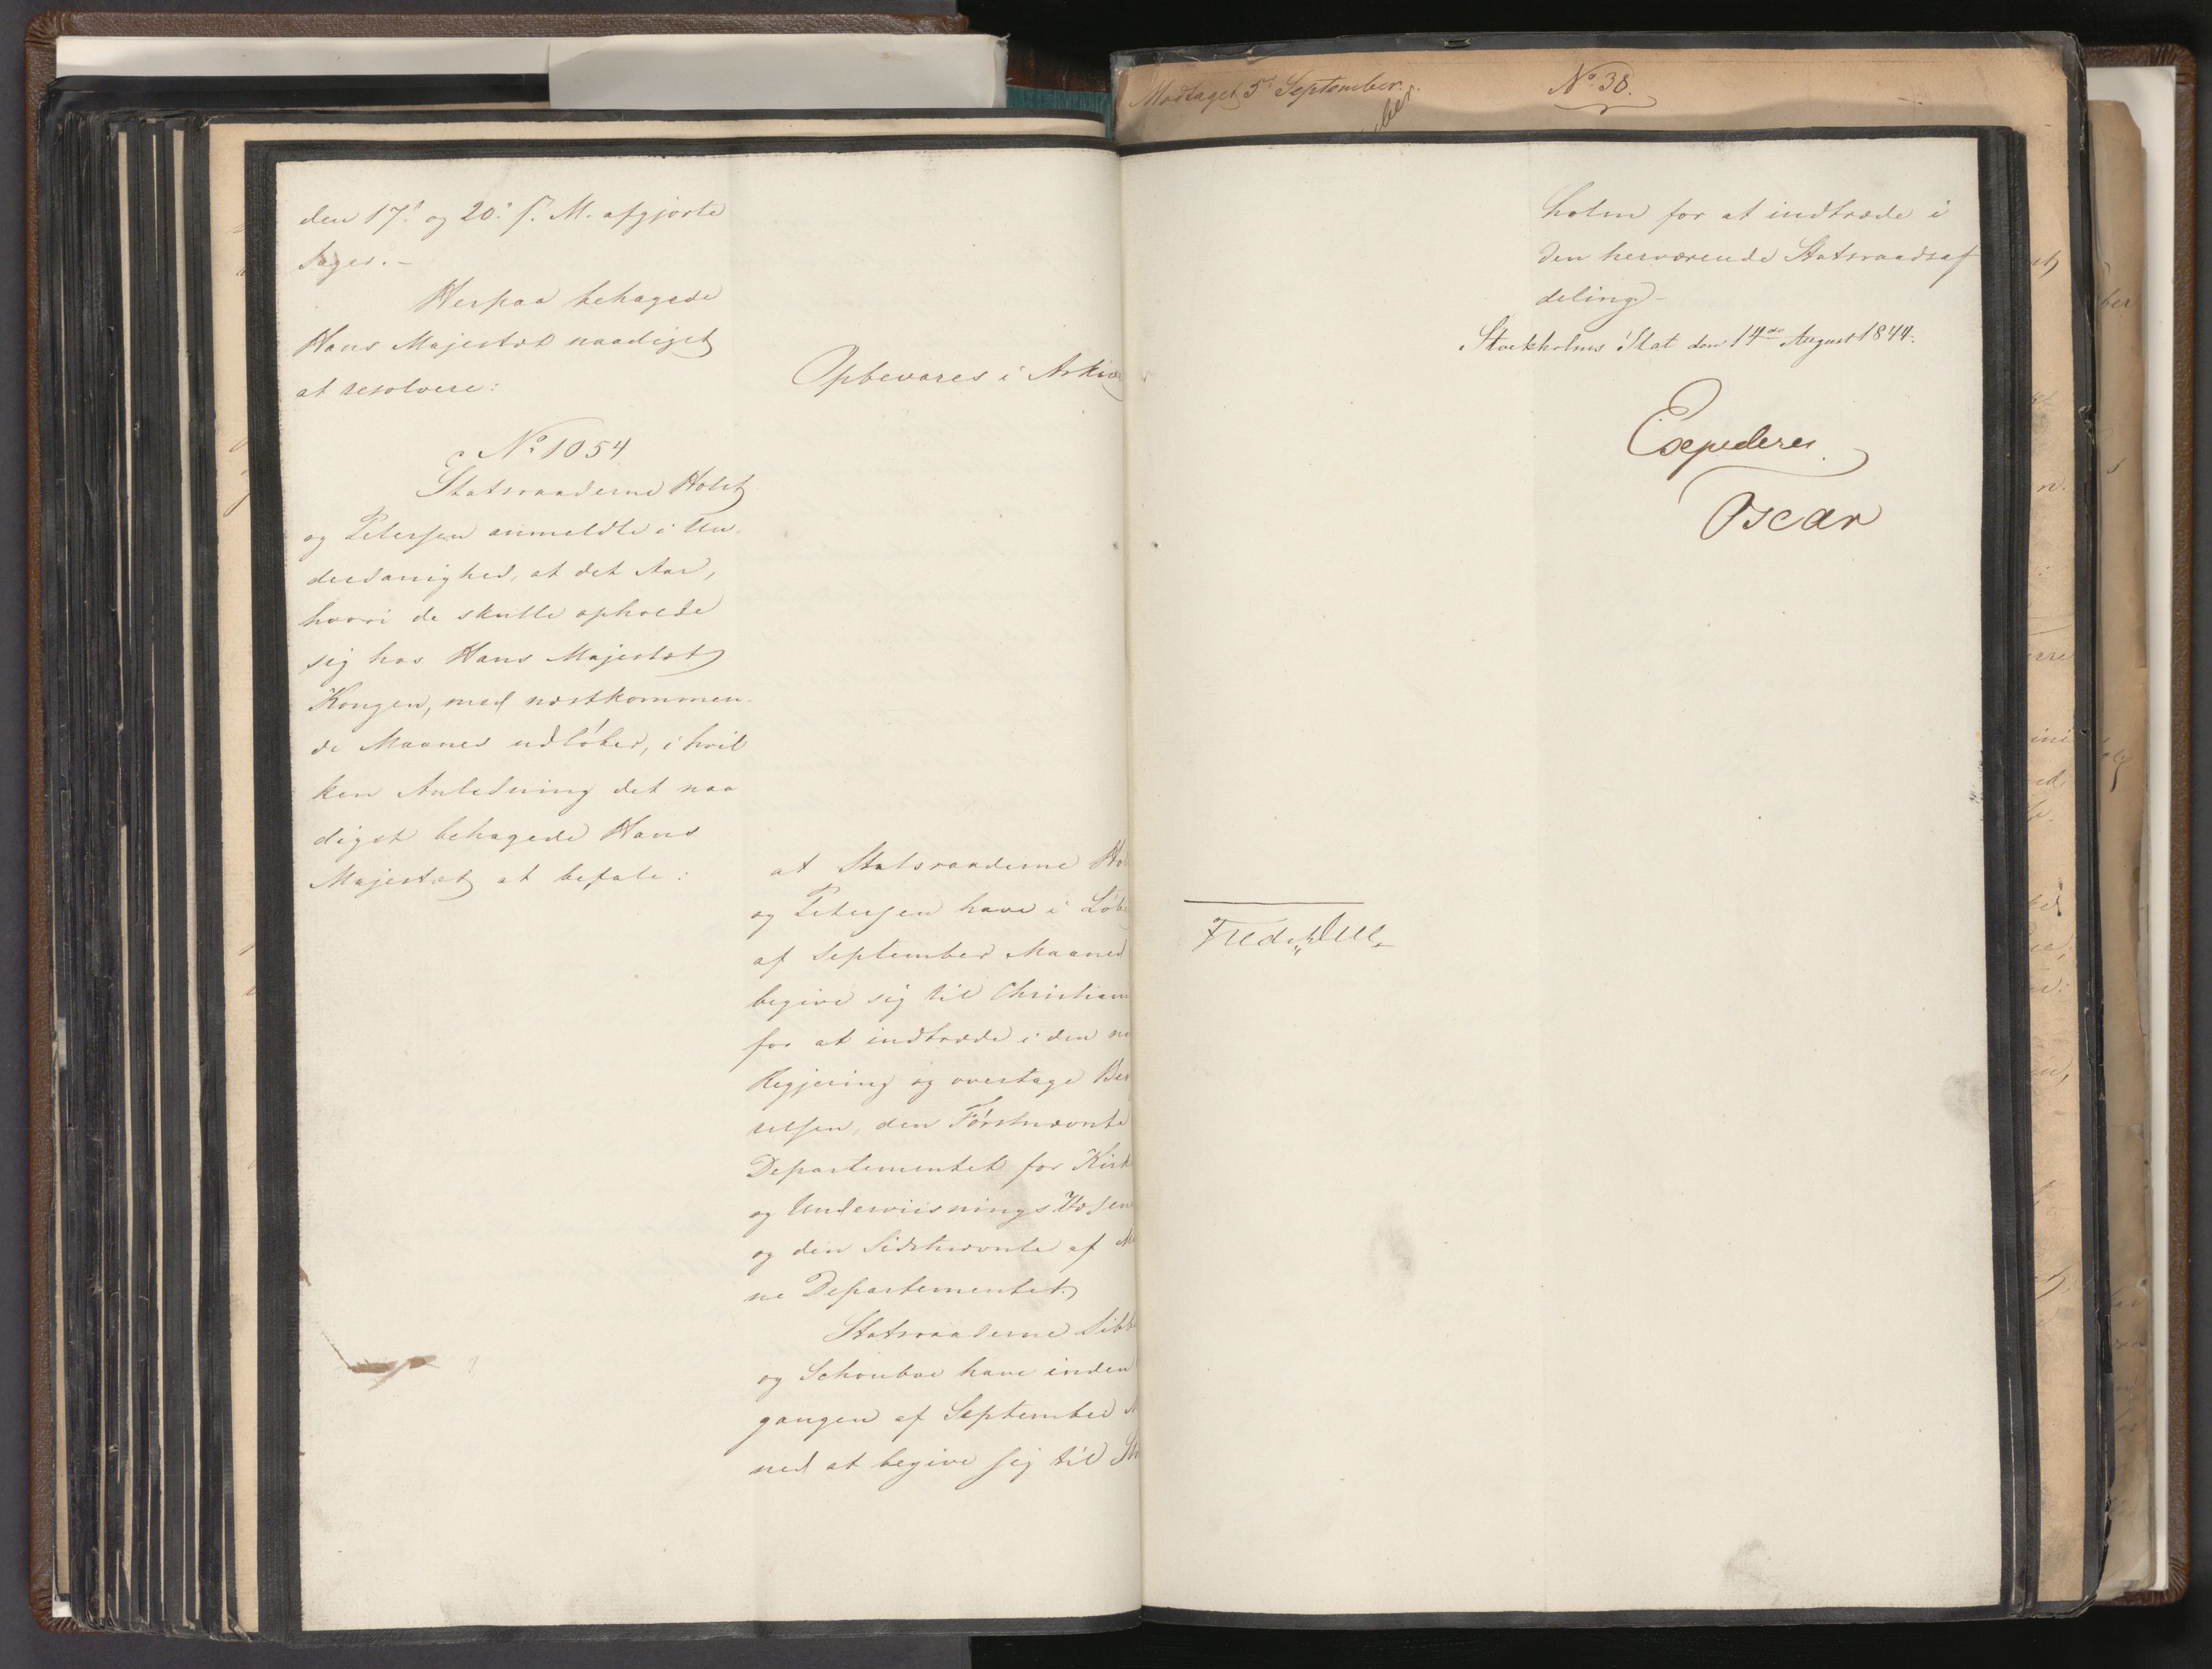 den 17de og 20de f. M. afgjorte
Sager. –
Herpaa behagede
Hans Majestæt naadigst
at resolvere:
Opbevares i Arkiv
No 1054
Statsraaderne Holst
og Petersen anmeldte i Un-
derdanighed, at det Aar,
hvori de skulle opholde
sig hos Hans Majestæt
Kongen, med næstkommen-
de Maaned udløber, i hvil
ken Anledning det naa
digst behagede Hans
Majestæt at befale:
at Statsraaderne Ho
og Petersen have i Løb
af September Maaned
begive sig til Christian
for at indtræde i den no
Regjering og overtage Be
relsen, den Førstnævnte
Departementet for Kirk
og Underviisnings Væsen
og den Sidstnævnte af Ma
ne Departementet.
Statsraaderne Sibb
og Schouboe have inden
gangen af September M
ned at begive sig til St
Modtaget 5t September.
No 38.
holm for at indtræde i
den herværende Statsraadsaf
deling. –
Stockholms Slot den 14de August 1844.
Expederes
Oscar
Fred. Due